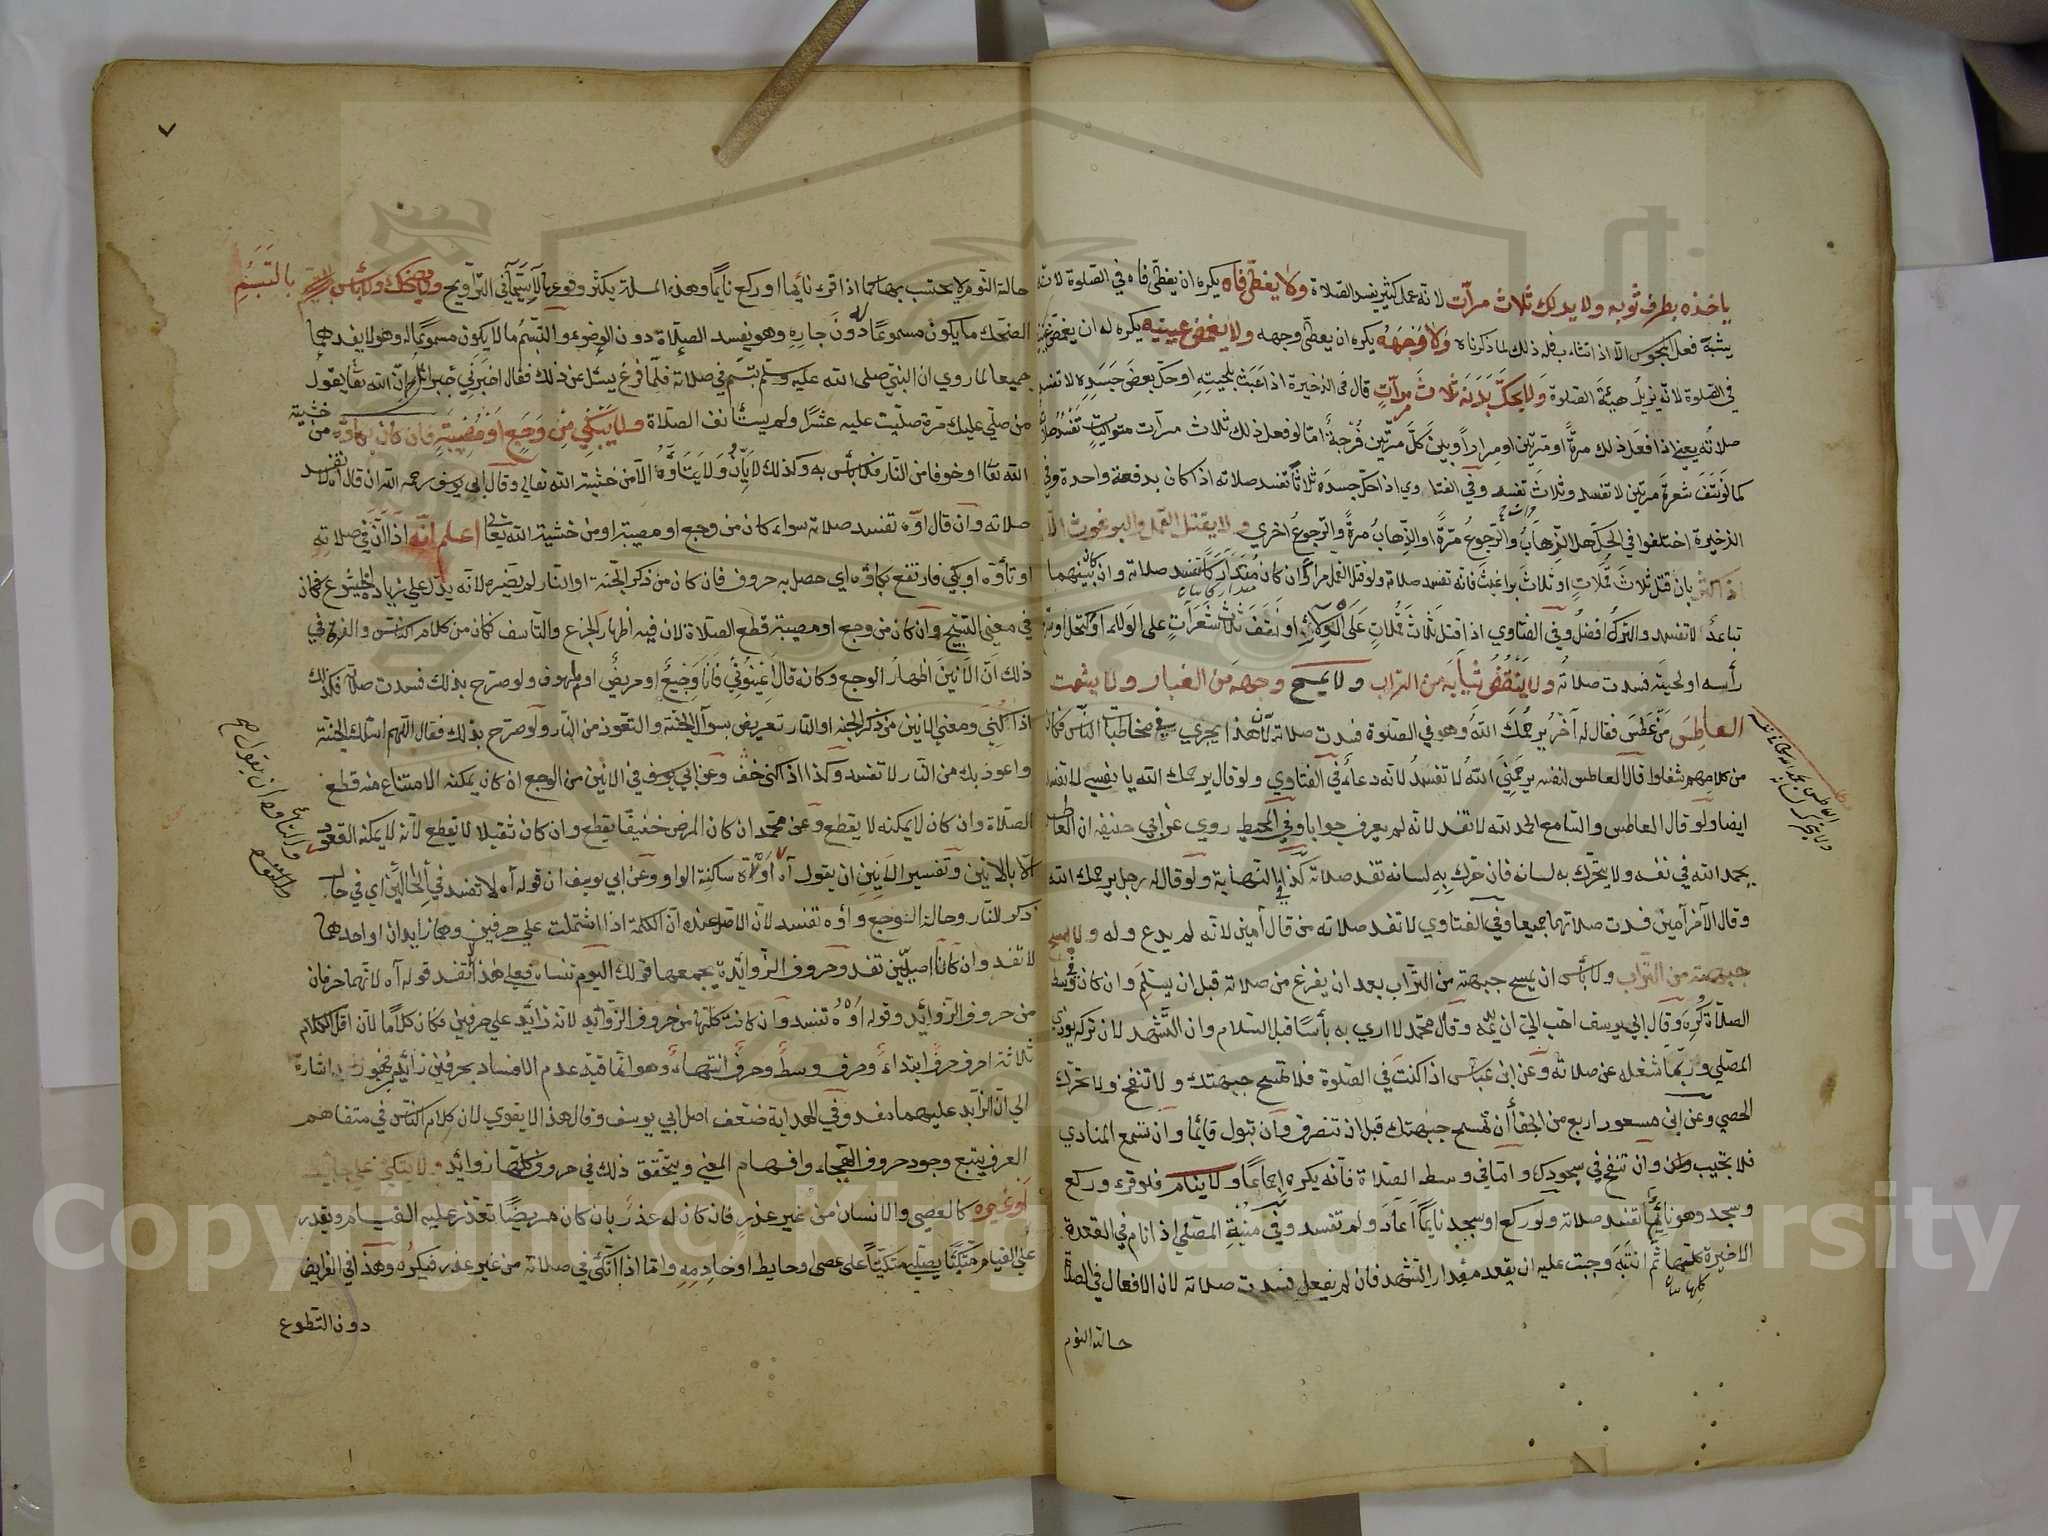 ياخذه بطرف ثوبه ولا يدلك ثلاث مرات لانه عمل كثير يفسد الصلاة ولا يغطى فاه يكره ان يغطى فاه في الصلوة لانه
يشبه فعل المجوس الا اذا تثاءب فله ذلك لما ذكرناه ولا وجهه يكره ان يغطى وجهه ولا يغمض عينيه يكره له ان يغمض
في الصلوة لانه يزيل هيئة الصلوة ولا يحك بدنه ثلاث مرات قال في الذخيرة اذا عبث بلحيته او حك بعض جسده لا تفسد
صلاته يعني اذا فعل ذلك مرة او مرتين او مرارا وبين كل مرتين فرجة اما لو فعل ذلك ثلاث مرات متواليات تفسد
كما لو نتف شعرة مرتين لا تفسد وثلاث تفسد وفي الفتاوي اذا حك جسده ثلاثا تفسد صلاته اذا كان بدفعة واحدة وفي
الذخيرة اختلفوا في الحك هل الذهاب والرجوع مرة او الذهاب مرة والرجوع اخري ولا يقتل القمل والبرغوث الا
اذا اكثر بان قتل ثلاث قملات او ثلاث براغيث فانه تفسد صلاته ولو قتل القمل مرارا ان كان مقدار تفسد صلاته وان كان بينهما
تباعد لا تفسد والترك افضل وفي الفتاوي اذا قتل ثلاث قملات على الولاء او نتف ثلاث شعرات على الولاء او اكتحل او
رأسه او لحيته فسدت صلاته ولا ينفض ثيابه من التراب ولا يمسح وجهه من الغبار ولا يشمت
العاطس من عطس فقال له آخر يرحمك الله وهو في الصلوة فسدت صلاته لان هذا يجري في مخاطبات الناس فكان
من كلامهم قال العاطس لنفسه يرحمني الله لا تفسد لانه دعاء في الفتاوي ولو قال يرحمك الله يا نفسي لا تفسد
ايضا ولو قال العاطس والسامع الحمد لله لا تفسد لانه لم يعرف جوابا وفي المحيط روي عن ابي حنيفه ان العاطس
يحمد الله في نفسه ولا يحرك به لسانه فان حرك به لسانه تفسد صلاته كذا في النهاية ولو قال له رجل يرحمك الله
وقال الآخر آمين فسدت صلاتهما جميعا وفي الفتاوي لا تفسد صلاته من قال آمين لانه لم يدع وله ولا يمسح
جبهته من التراب ولا بأس ان يمسح جبهته من التراب بعد ان يفرغ من صلاته قبل ان يسلم وان كان في وسط
الصلاة كره وقال ابي يوسف احب الي ان وقال محمد لا اري به بأسا قبل السلام وان التشهد لان تركه يوذي
المصلي وربما شغله عن صلاته وعن ابن عباس اذا كنت في الصلوة فلا تمسح جبهتك ولا تنفخ ولا تحرك
الحصي وعن ابن مسعود اربع من الجفا ان تمسح جبهتك قبل ان تنصرف وان تبول قائما وان تسمع المنادي
فلا تجيب وان تنفخ في سجودك واما في وسط الصلاة فانه يكره اجماعا ولا ينام فلو قرء وركع
وسجد وهو نائما تفسد صلاته ولو ركع او سجد نائما اعاد ولم تفسد وفي منية المصلي اذا نام في القعدة
الاخيرة كلها ثم انتبه وجبت عليه ان يقعد مقدار التشهد فان لم يفعل فسدت صلاته لان الافعال في الصلاة
حالة النوم
٧
حالة النوم لا يحتسب بها كما اذا قرء نائما او ركع نايما وهذه المسلة يكثر وقوعها لا سيما في التراويح ولا يضحك ولا بأس بالتبسم
الضحك ما يكون مسموعا له دون جاره وهو يفسد الصلاة دون الوضوء والتبسم ما لا يكون مسموعا له وهو لا يفسدهما
جميعا لما روي ان النبي صلى الله عليه وسلم تبسم في صلاته فلما فرغ سئل عن ذلك فقال اخبرني جبرائيل ان الله تعا يقول
من صلى عليك مرة صليت عليه عشرا ولم يستانف الصلاة ولا يبكي من وجع او مصيبة فان كان بكاؤه من خشية
الله تعا او خوفا من النار فلا بأس به وكذلك لا يئن ولا يتأوه الا من خشية الله تعالي وقال ابي يوسف رحمه الله ان قال اه لا تفسد
صلاته وان قال اوه تفسد صلاته سواء كان من وجع او مصيبة او من خشية الله تعالى اعلم انه اذا ان في صلاته
او تأوه او بكي فارتفع بكاؤه اي حصل به حروف فان كان من ذكر الجنة او النار لم يضره لانه يدل علي زيادة الخشوع فكان
في معني التسبيح وان كان من وجع او مصيبة قطع الصلاة لان فيه اظهار الجزع والتاسف فكان من كلام الناس والفرق في
ذلك ان الانين اظهار الوجع وكانه قال اغيثوني فانا وجيع او مريض او ملهوف ولو صرح بذلك فسدت صلاته فكذلك
اذا كني ومعني الانين من ذكر الجنه او النار تعريض بسوآل الجنة والتعوذ من النار ولو صرح بذلك فقال اللهم اسئلك الجنة
واعوذ بك من النار لا تفسد وكذا اذا كني خف وعن ابي يوسف في الانين من الوجع ان كان يمكنه الامتناع منه قطع
الصلاة وان كان لا يمكنه لا يقطع وعن محمد ان كان المرض خفيفا يقطع وان كان ثقيلا لا يقطع لانه لا يمكنه القعود
الا بالانين وتفسير الانين ان يقول آه اوه ساكنة الواو وعن ابي يوسف ان قوله آه لا تفسد في الحالين اي في حالة
ذكر النار وحالة التوجع واوه تفسد لان الاصل عنده ان الكلمة اذا اشتملت علي حرفين وهما زايدان او احدهما
لا تفسد وان كانا اصليين تفسد وحروف الزوائدة يجمعها قولك اليوم تنساه فعلي هذا لا تفسد قوله آه لانهما حرفان
من حروف الزوائد وقوله اوه تفسد وان كانت كلها من حروف الزوائد لانه زائد علي حرفين فكان كلاما لان اقل الكلام
ثلاثة احرف حرف ابتداء وحرف وسط وحرف انتهاء وهو انما قيد عدم الافساد بحرفين زائدين اشارة
الي ان الزائد عليهما مفسد وفي الهداية ضعف اصل ابي يوسف وقال هذا لا يقوي لان كلام الناس في متفاهم
العرف يتبع وجود حروف الهجاء وافهام المعني ويتحقق ذلك في حروف كلها زوائد ولا يتكئ علي حائط
او غيره كالعصي والانسان من غير عذر فان كان له عذر بان كان مريضا تعذر عليه القيام ويقدر
علي القيام متكئا يصلي متكئا علي عصي وحايط او خادمه واما اذا اتكئ في صلاته من غير عذر فيكره وهذا في الفرايض
دون التطوع